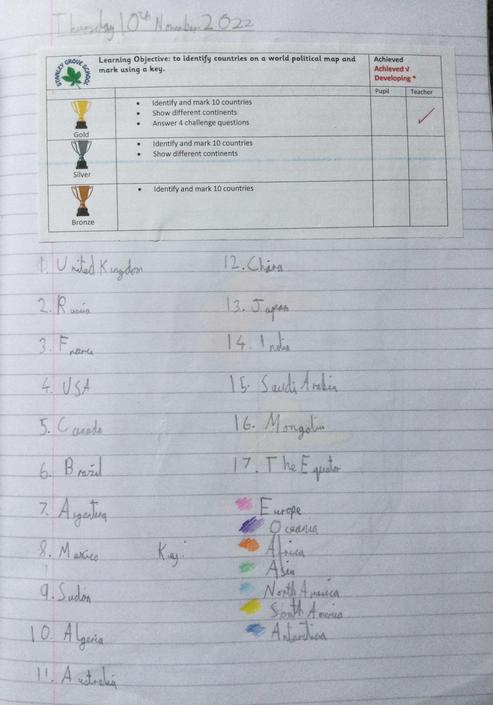 Thursday 10th November 2022
STANLEY GROVE SCHOOL
Learning Objective: to identify countries on a world political map and
mark using a key.
Achieved
Achieved √
Developing *
Pupil Teacher
Gold
• Identify and mark 10 countries
• Show different continents
• Answer 4 challenge questions
Silver
• Identify and mark 10 countries
• Show different continents
Bronze
• Identify and mark 10 countries
1. United Kingdom
2. Russia
3. France
4. USA
5. Canada
6. Brazil
7. Argentina
8. Mexico
9. Sudan
10. Algeria
11. Australia
12. China
13. Japan
14. India
15. Saudi Arabia
16. Mongolia
17. The Equator
Key:
Europe
Oceania
Africa
Asia
North America
South America
Antartica